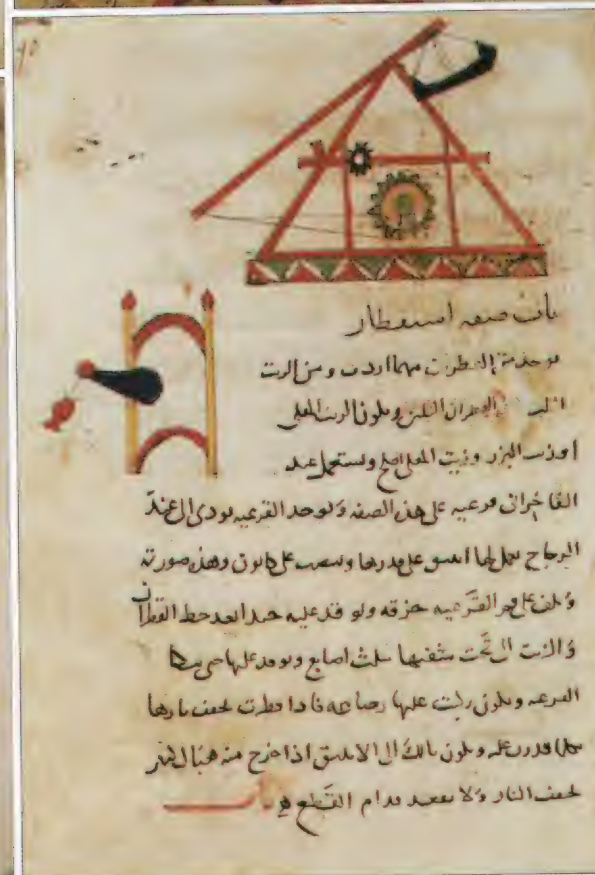 باب صفه استقطار
يوخذ من القطران مهما اردت ومن الزيت
القطران الثلثين ويكون الزيت المغلى
او زيت البزر وزيت المغلى اصلح ويستعمل عند
الفاخرانى قرعيه على هذه الصفه ويوخذ القرعيه يودى الى عند
الزجاج يعمل لها انبيق على قدرها وينصب على كانون وهذه صورته
ويلف على القرعيه خرقه ويوقد عليه جيدا بعد حط القطران
والزيت الى تحت شفتها بثلث اصابع ويوقد عليها حتى
القرعه ويكون ركبت عليها فاذا قطرت تخفف نارها
مهما قدرت عليه ويكون بالك الى الانبيق اذا خرج منه
تخفف النار ولا تقعد قدام القطع